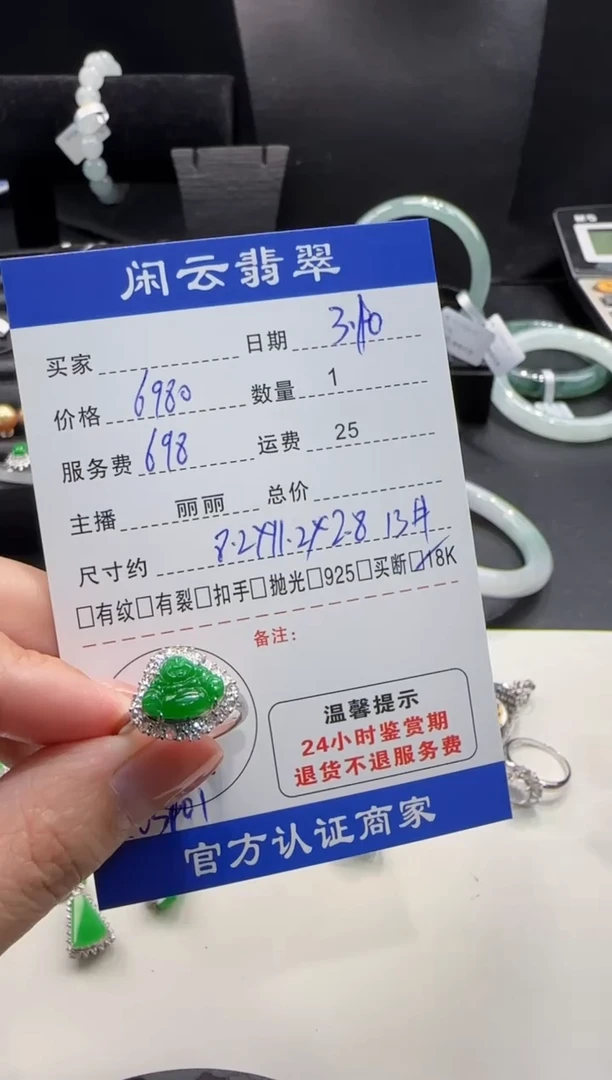 闲云翡翠
买家 日期 3.10
价格 6980 数量 1
服务费 698 运费 25
主播 丽丽 总价
尺寸约 8.2×11.2×2.8 13#
□有纹□有裂□扣手□抛光□925□买断☑18K
备注:
温馨提示
24小时鉴赏期
退货不退服务费
官方认证商家